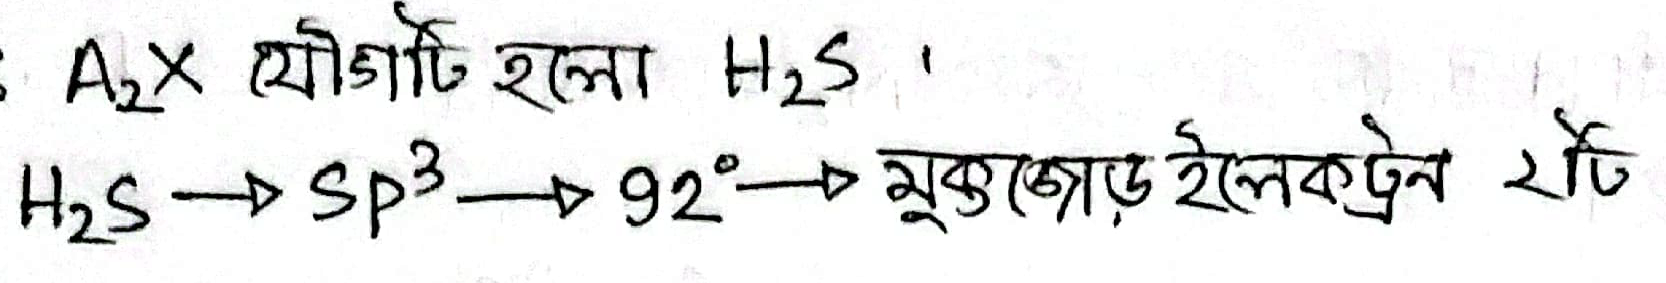 : A₂X যৌগটি হলো H₂S ।
H₂S → SP³ → 92° → মুক্তজোড় ইলেকট্রন ২টি